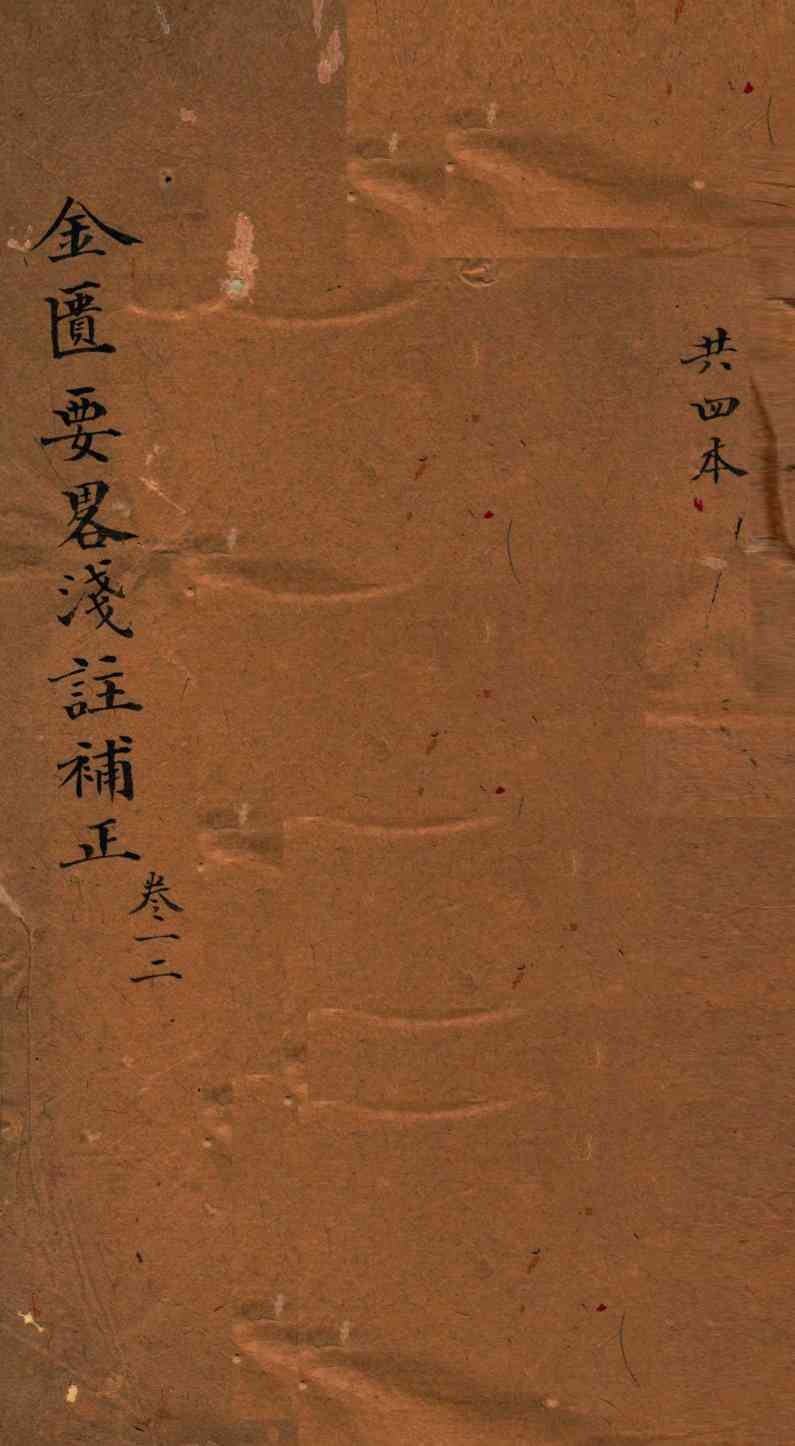 共四本
金匱要畧淺註補正
卷一二